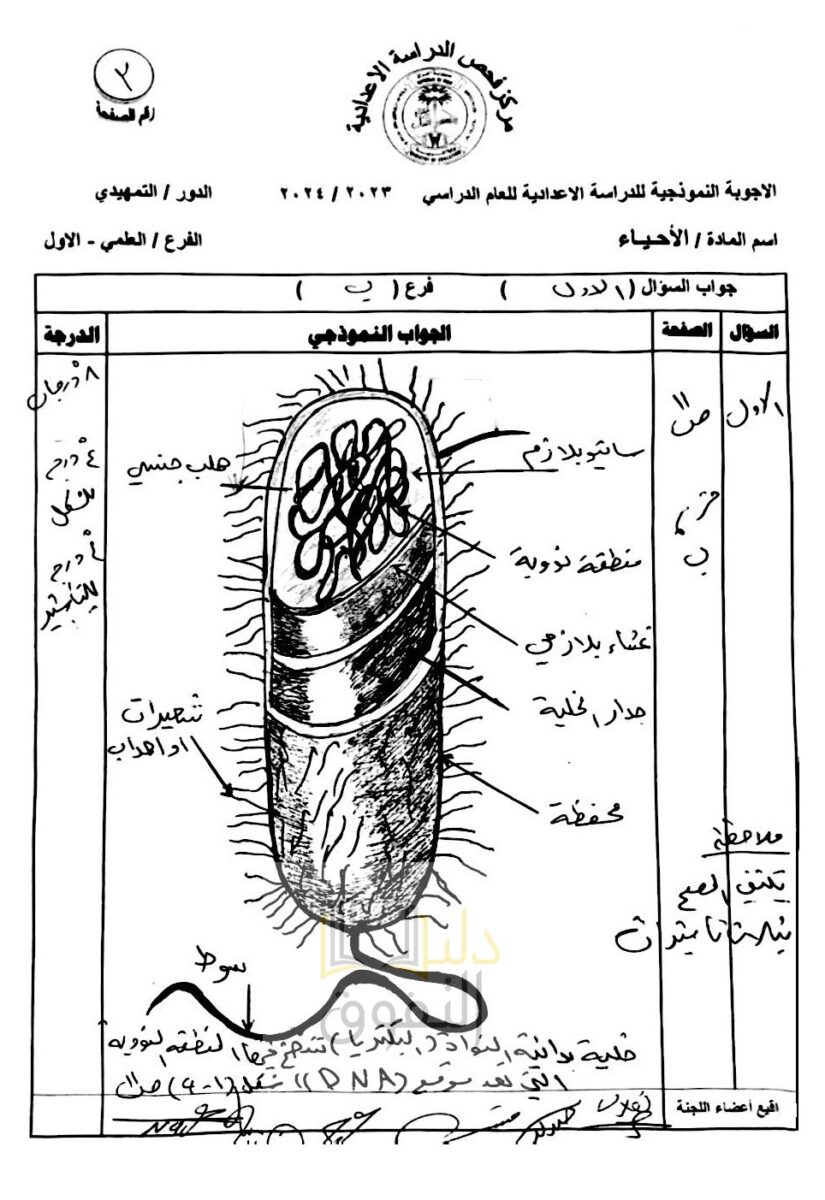 مركز فحص الدراسة الاعدادية
٢
رقم الصفحة
الاجوبة النموذجية للدراسة الاعدادية للعام الدراسي ٢٠٢٣ / ٢٠٢٤ الدور / التمهيدي
اسم المادة / الأحياء الفرع / العلمي - الاول
جواب السؤال ( الاول ) فرع ( ب )
السؤال الصفحة الجواب النموذجي الدرجة
الاول
ص١١
فرع
ب
٨ درجات
٤ درج
للشكل
٤ درج
للتأشير
هلب جنسي
سايتوبلازم
منطقة نووية
غشاء بلازمي
جدار الخلية
شعيرات
او اهداب
محفظة
سوط
ملاحظة
يكتفي المصحح
بثلاث تأشيرات
دليل
التفوق
خلية بدائية النواة (البكتريا) تتضح فيها المنطقة النووية
التي تعد موقع (DNA) شكل (١-٩) ص١١
اقيع أعضاء اللجنة